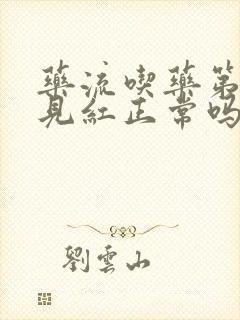 藥流喫藥第
見紅正常嗎
劉雲山